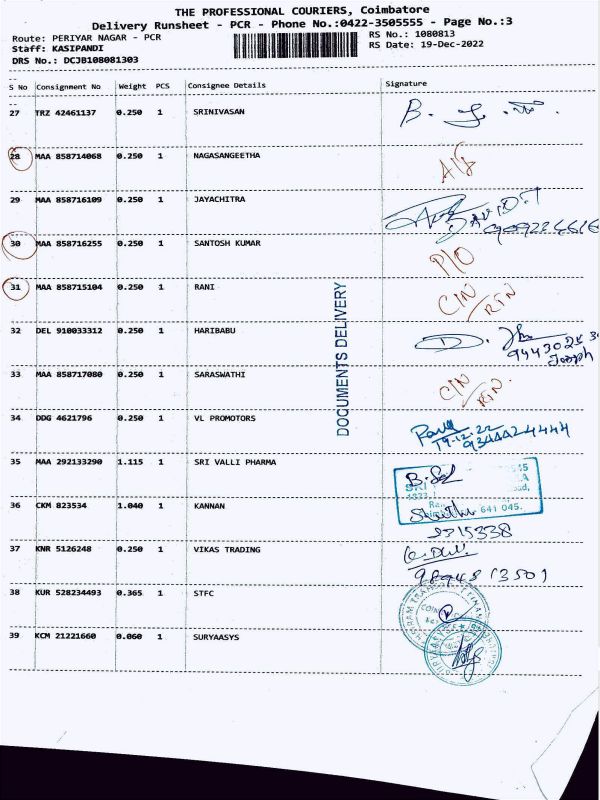 THE PROFESSIONAL COURIERS, Coimbatore
Delivery Runsheet - PCR - Phone No.:0422-3505555 - Page No.:3
Route: PERIYAR NAGAR - PCR
RS No.: 1080813
Staff: KASIPANDI
RS Date: 19-Dec-2022
DRS No.: DCJB108081303
S No Consignment No Weight PCS Consignee Details Signature
27 TRZ 42461137 0.250 1 SRINIVASAN
28 MAA 858714068 0.250 1 NAGASANGEETHA
29 MAA 858716109 0.250 1 JAYACHITRA
30 MAA 858716255 0.250 1 SANTOSH KUMAR P/O
31 MAA 858715104 0.250 1 RANI C/N / RTN
32 DEL 910033312 0.250 1 HARIBABU
Joseph
33 MAA 858717080 0.250 1 SARASWATHI C/N / RTN.
34 DDG 4621796 0.250 1 VL PROMOTORS
19.12.22
35 MAA 292133290 1.115 1 SRI VALLI PHARMA
641 045.
36 CKM 823534 1.040 1 KANNAN
37 KNR 5126248 0.250 1 VIKAS TRADING
38 KUR 528234493 0.365 1 STFC
39 KCM 21221660 0.060 1 SURYAASYS
DOCUMENTS DELIVERY